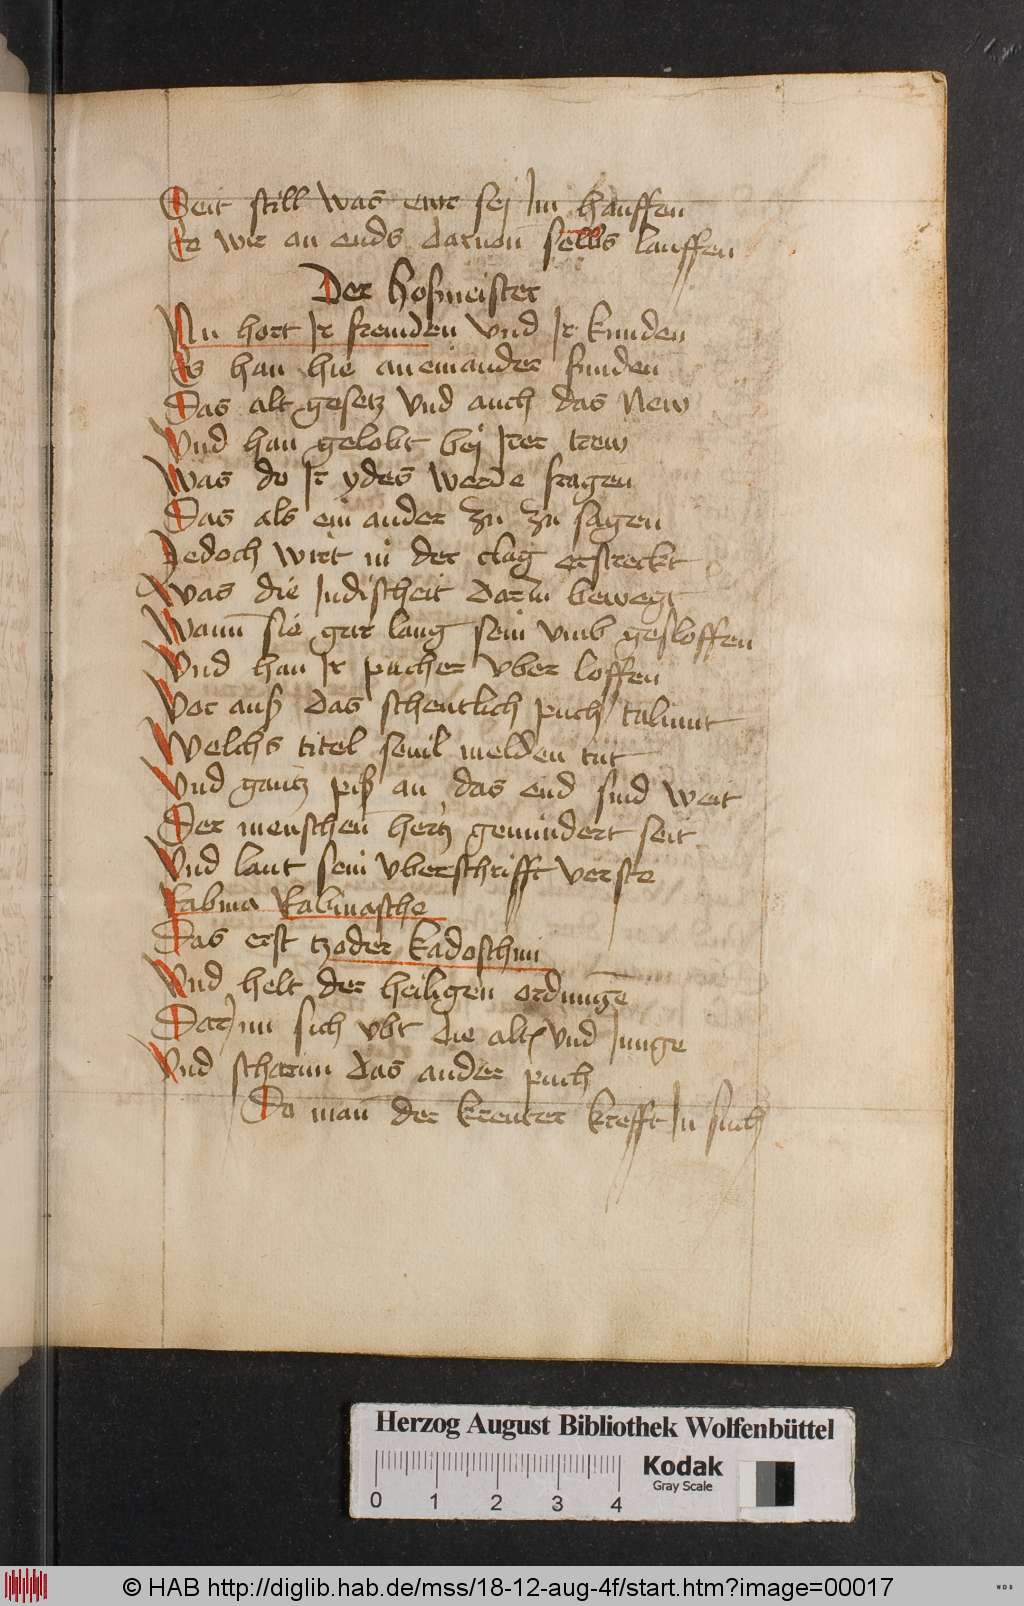 Seit still was ewr sej Im hauffen
Ee wir an ends daruon sells lauffen
Der hofmeister
Nu hort Ir fremden vnd Ir kunden
Es han hie an einander funden
Das alt gesetz vnd auch das New
Vnd han gelobt bej Irer trew
Was do Ir ydes werde fragen
Das als ein ander zu zu sagen
Jedoch wirt in der clag erstreckt
Was die Judischeit darin bewegt
Wann sie gar lang sein vmb gesloffen
Vnd han Ir pucher vber loffen
Vor auß das schentlich puch talimut
Welchs titel seuil melden tut
Vnd gantz piß an das end sind weit
Der menschen hertz gemindert seit
Vnd laut sein vberschrifft verste
Rabina Rabinasche
Das erst tzoder kadoschim
Vnd helt der heiligen ordnunge
Dar Inn sich vbt die alt vnd Junge
Vnd scharuu das ander puch
Do man der kreuter krefft In such
Herzog August Bibliothek Wolfenbüttel
Kodak
Gray Scale
0 1 2 3 4
© HAB http://diglib.hab.de/mss/18-12-aug-4f/start.htm?image=00017